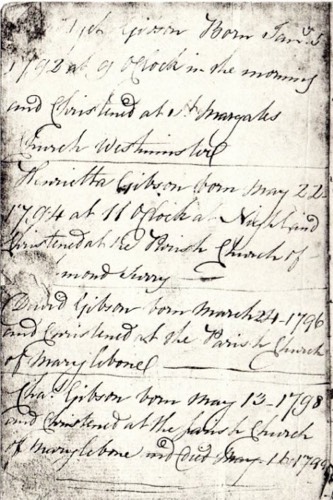 Gibson Born Jany 5
1792 at 9 oClock in the morning
and Christened at St Margates
Church Westminster
Henrietta Gibson born May 22
1794 at 11 oClock at Night and
Christened at the Parish Church of
mond Surry
David Gibson born March 24-1796
and Christened at the Parish Church
of Marylebone
Chas Gibson born May 13-1798
and Christened at the Parish Church
of Marylebone and Died May-16-1799